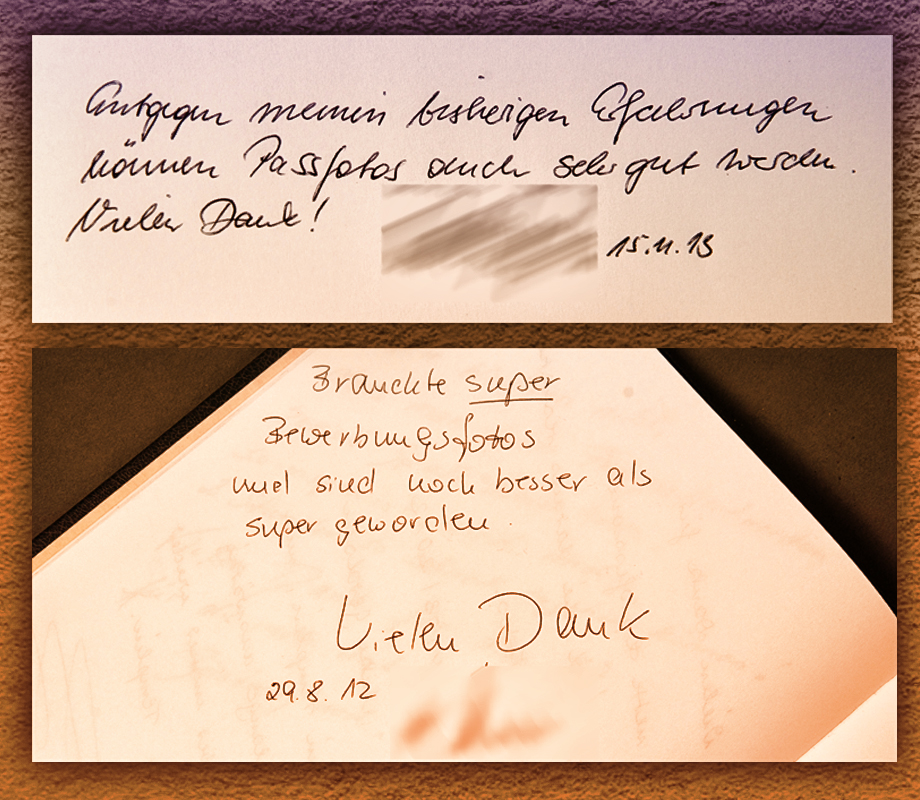 Entgegen meinen bisherigen Erfahrungen
können Passfotos auch sehr gut werden.
Vielen Dank!
15.11.13
Brauchte super
Bewerbungsfotos
und sind noch besser als
super geworden.
Vielen Dank
29.8.12